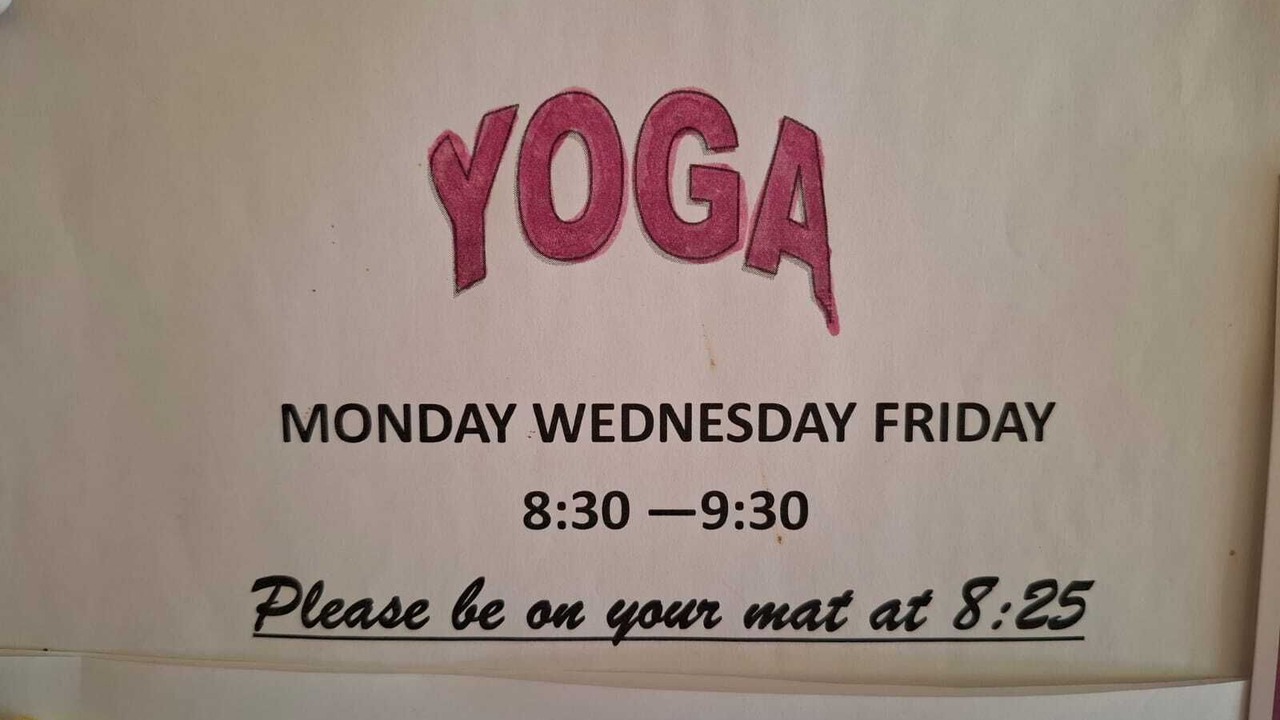 YOGA
MONDAY WEDNESDAY FRIDAY
8:30 —9:30
Please be on your mat at 8:25